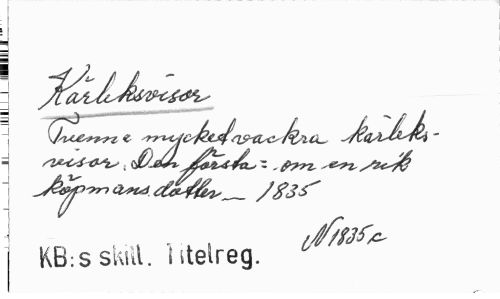 Kärleksvisor
Tvenne mycket vackra kärleks-
visor. Den första = om en rik
köpmans dotter_ 1835
N 1835 c
KB:s skill. Titelreg.